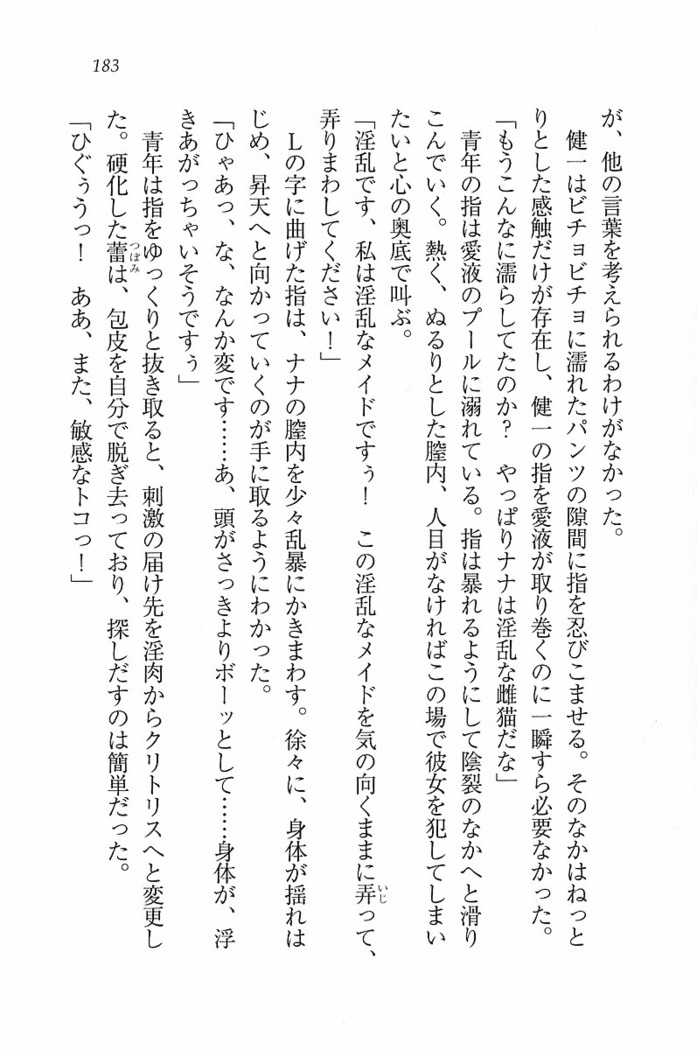 183
が、他の言葉を考えられるわけがなかった。
　健一はビチョビチョに濡れたパンツの隙間に指を忍びこませる。そのなかはねっと
りとした感触だけが存在し、健一の指を愛液が取り巻くのに一瞬すら必要なかった。
「もうこんなに濡らしてたのか？　やっぱりナナは淫乱な雌猫だな」
　青年の指は愛液のプールに溺れている。指は暴れるようにして陰裂のなかへと滑り
こんでいく。熱く、ぬるりとした膣内、人目がなければこの場で彼女を犯してしまい
たいと心の奥底で叫ぶ。
「淫乱です、私は淫乱なメイドですぅ！　この淫乱なメイドを気の向くままに弄って、
弄りまわしてください！」
　Ｌの字に曲げた指は、ナナの膣内を少々乱暴にかきまわす。徐々に、身体が揺れは
じめ、昇天へと向かっていくのが手に取るようにわかった。
「ひゃあっ、な、なんか変です……あ、頭がさっきよりボーッとして……身体が、浮
きあがっちゃいそうですぅ」
　青年は指をゆっくりと抜き取ると、刺激の届け先を淫肉からクリトリスへと変更し
た。硬化した蕾は、包皮を自分で脱ぎ去っており、探しだすのは簡単だった。
「ひぐぅうっ！　ああ、また、敏感なトコっ！」
いじ
つぼみ